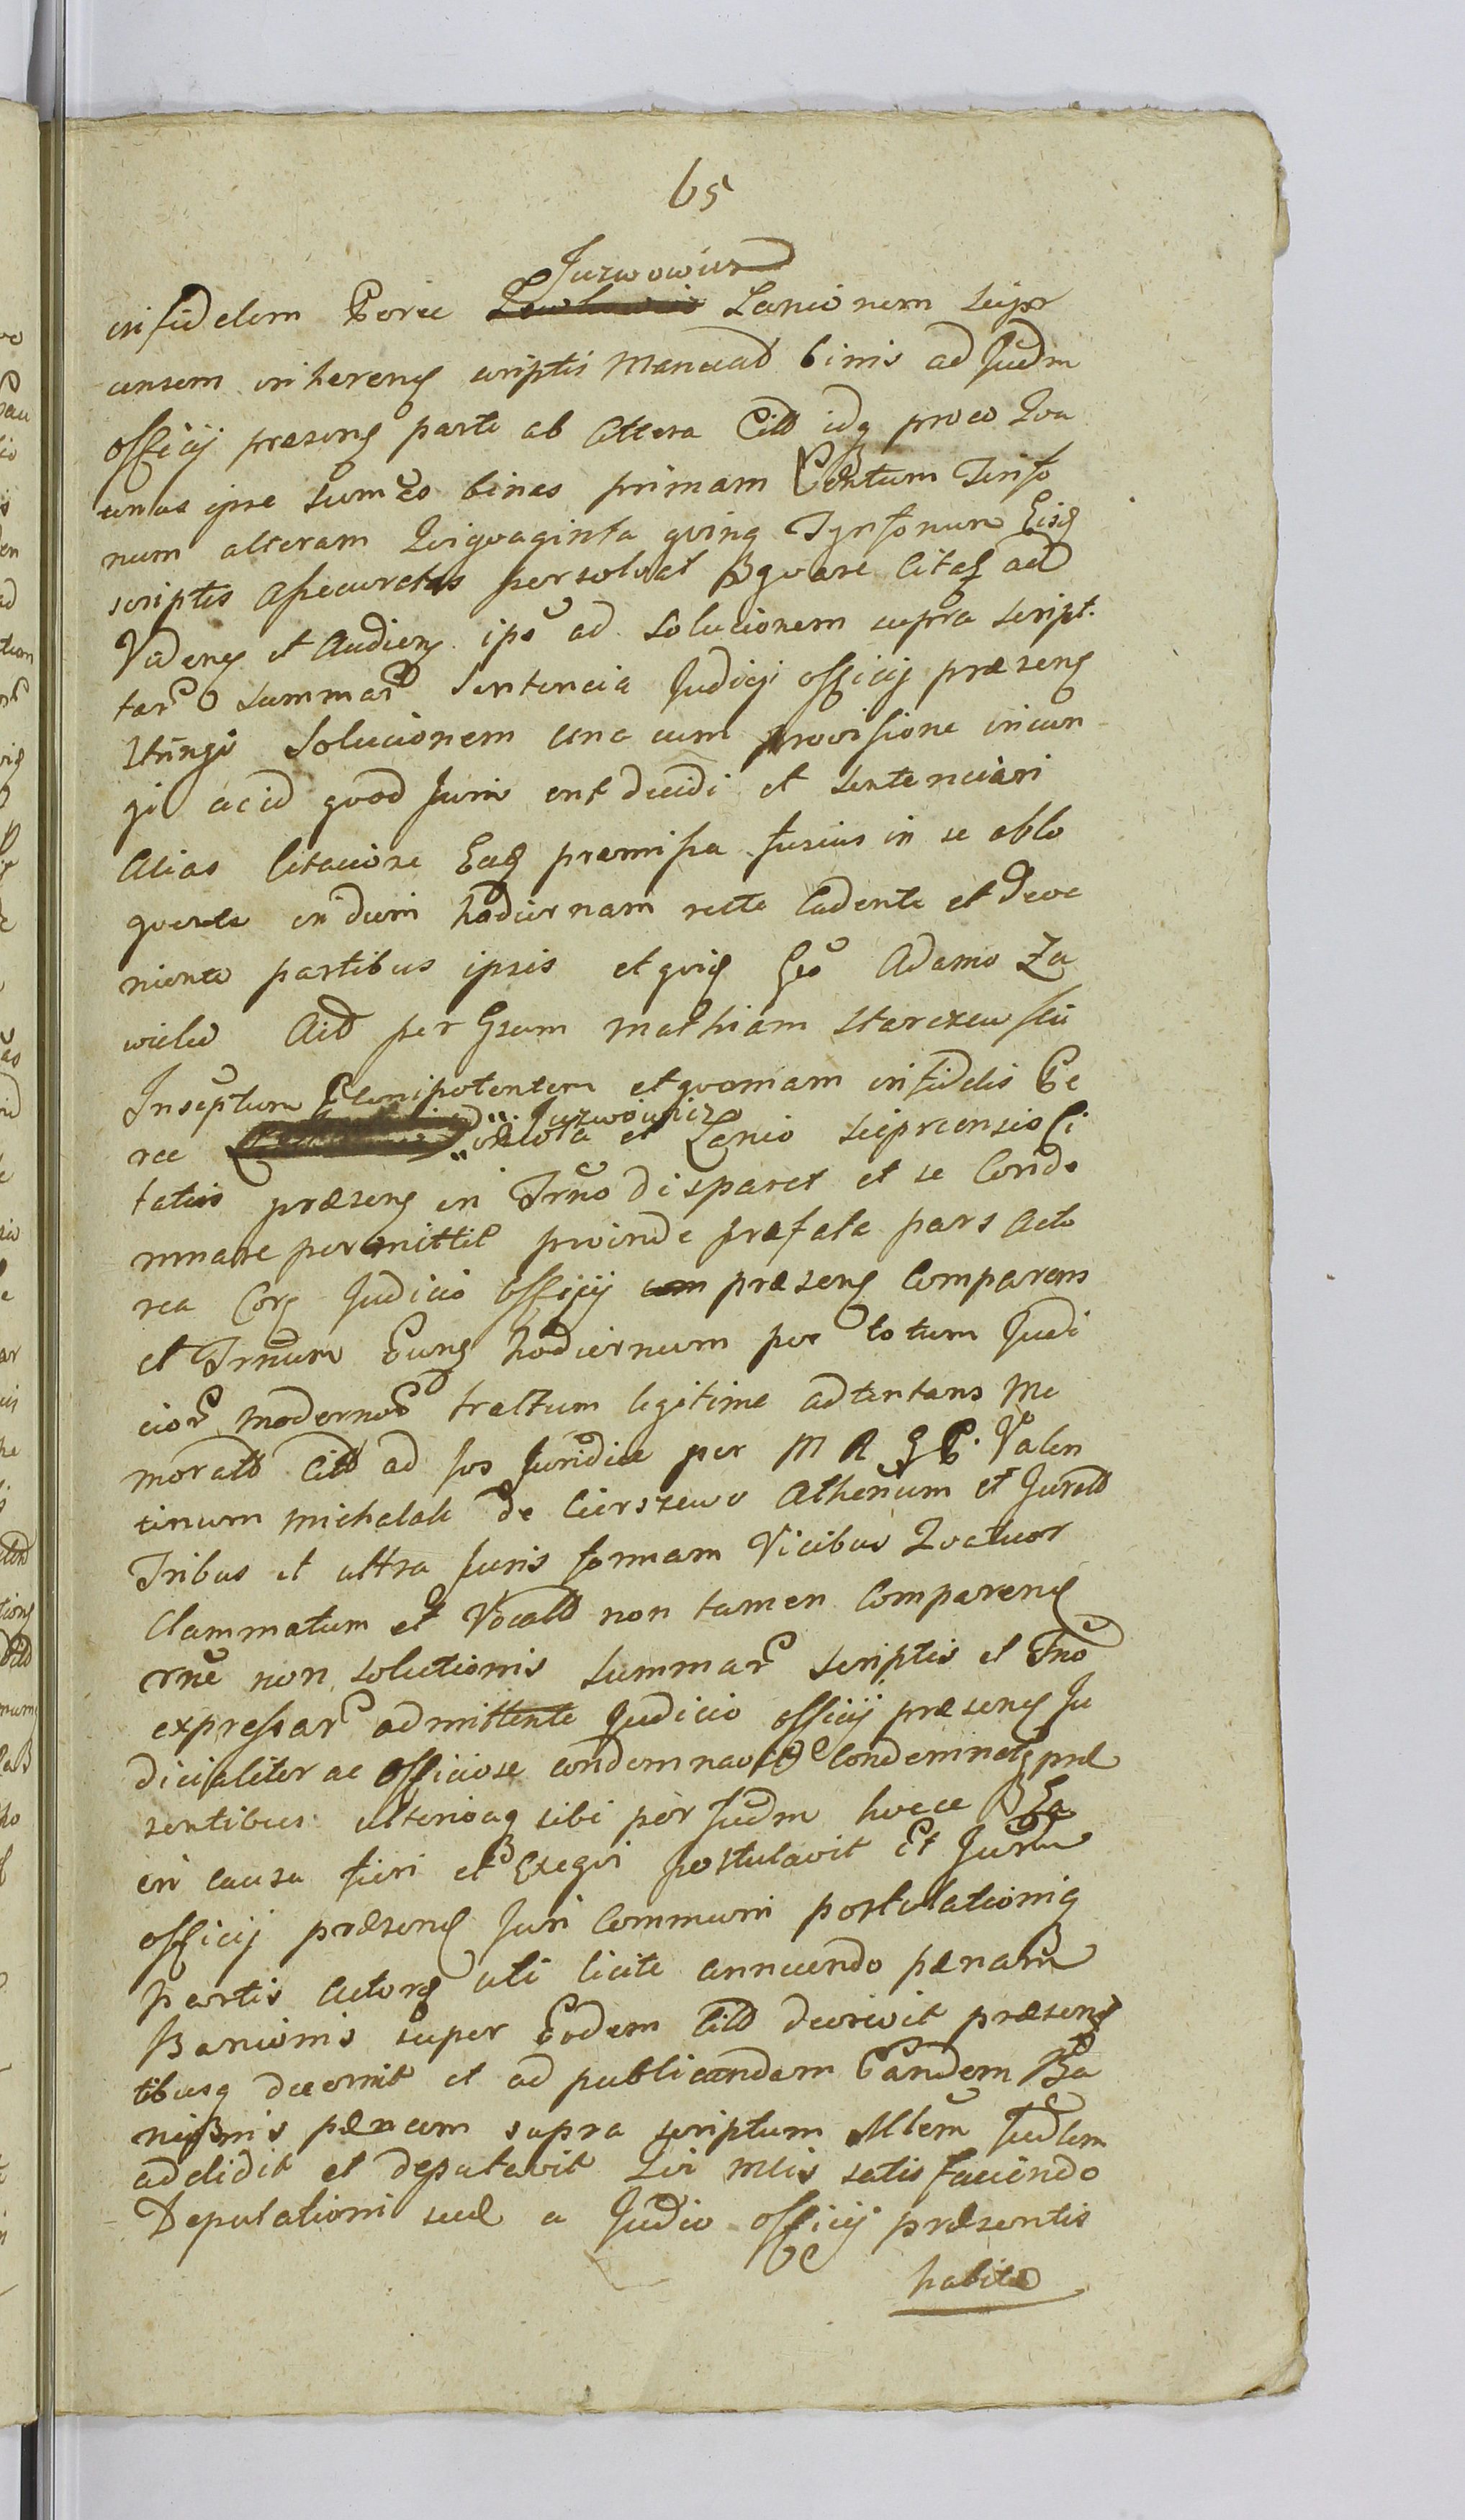 65
Juzwowicz
infidelem Perec Lanionem supr
censem inhereng scriptis Manuad binis ad Judm
officij præseng parte ab altera Citt idq pro eo Qva
unus ipse summas binas primam Centum Tinfo
num alteram Qvigvaginta qving Tynfonum Eisq
scriptis Assecuratas persolvat qvare Citat ad
Videng et Audieng ips ad solucionem supra script.
tar summar Sentencia Judicij officij præseng
stringi Solucionem una cum provisione iniun
gi ac id qvod Juris erit decidi et sentenciari
Alias Citacione Eaq præmissa fusius in se oblo
qvente in diem hodiernam recte Cadente et deve
niente partibus ipsis et qvid Gso Adamo Za
wielo per Gsum Mathiam Starczewski
Inseptum Plenipotentem et qvoniam infidelis Pe
rec Juzwowicz
et Lanio suprcensis Ci
tatus præseng in Trno disparet et se Conde
mnare permittit proinde præfata pars Acto
rea Corq Judicio Officij præseng Comparens
et Trnum Eunq hodiernum per totum Judi
cior modernor tractum legitime adtentans Me
moratt Citt ad Jus Juridice per M R G P. Valen
tinum Michalak de Cierszewo Athenum et Juratt
Tribus et ultra Juris formam Vicibus Qvatuor
Clammatum et Vocatt non tamen Compareng
rne non solutionis summar scriptis et Trno
expressar admittente Judicio officij præseng Ju
dicialiter ac Officiose condemnavit Condemnatq præ
sentibus ulteriusq sibi per Judm hocce
in causa fieri et Exeqvi postulavit Et Judm
officij præseng Juri Communi postulationiq
partis Actoreq uti licite annuendo pænam
Banicionis super Eodem Citt decrevit præseng
tibusq decernit et ad publicandam Eandem Ba
nicionis pænam supra scriptum Mtem Judlem
addidit et deputavit Qvi Mtis satisfaciendo
Deputationi suæ a Judicio officij præsentis
habitæ